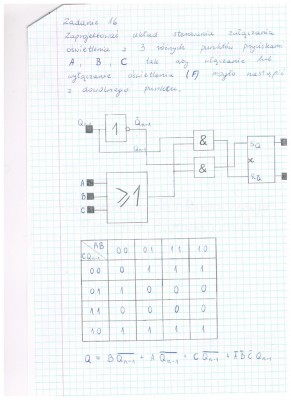 Zadanie 16
Zaprojektować układ sterowania załączania
oświetlenia z 3 różnych punktów przyciskami
A, B, C tak aby włączanie lub
wyłączanie oświetlenia (F) mogło nastąpić
z dowolnego punktu.
Qn-1 1 Qn-1
&
Qn-1
&
A
B ≥1
C
AB
CQn-1 00 01 11 10
00 0 1 1 1
01 1 0 0 0
11 0 0 0 0
10 1 1 1 1
Q = B Q̅n-1 + A Q̅n-1 + C Q̅n-1 + A̅ B̅ C̅ Qn-1